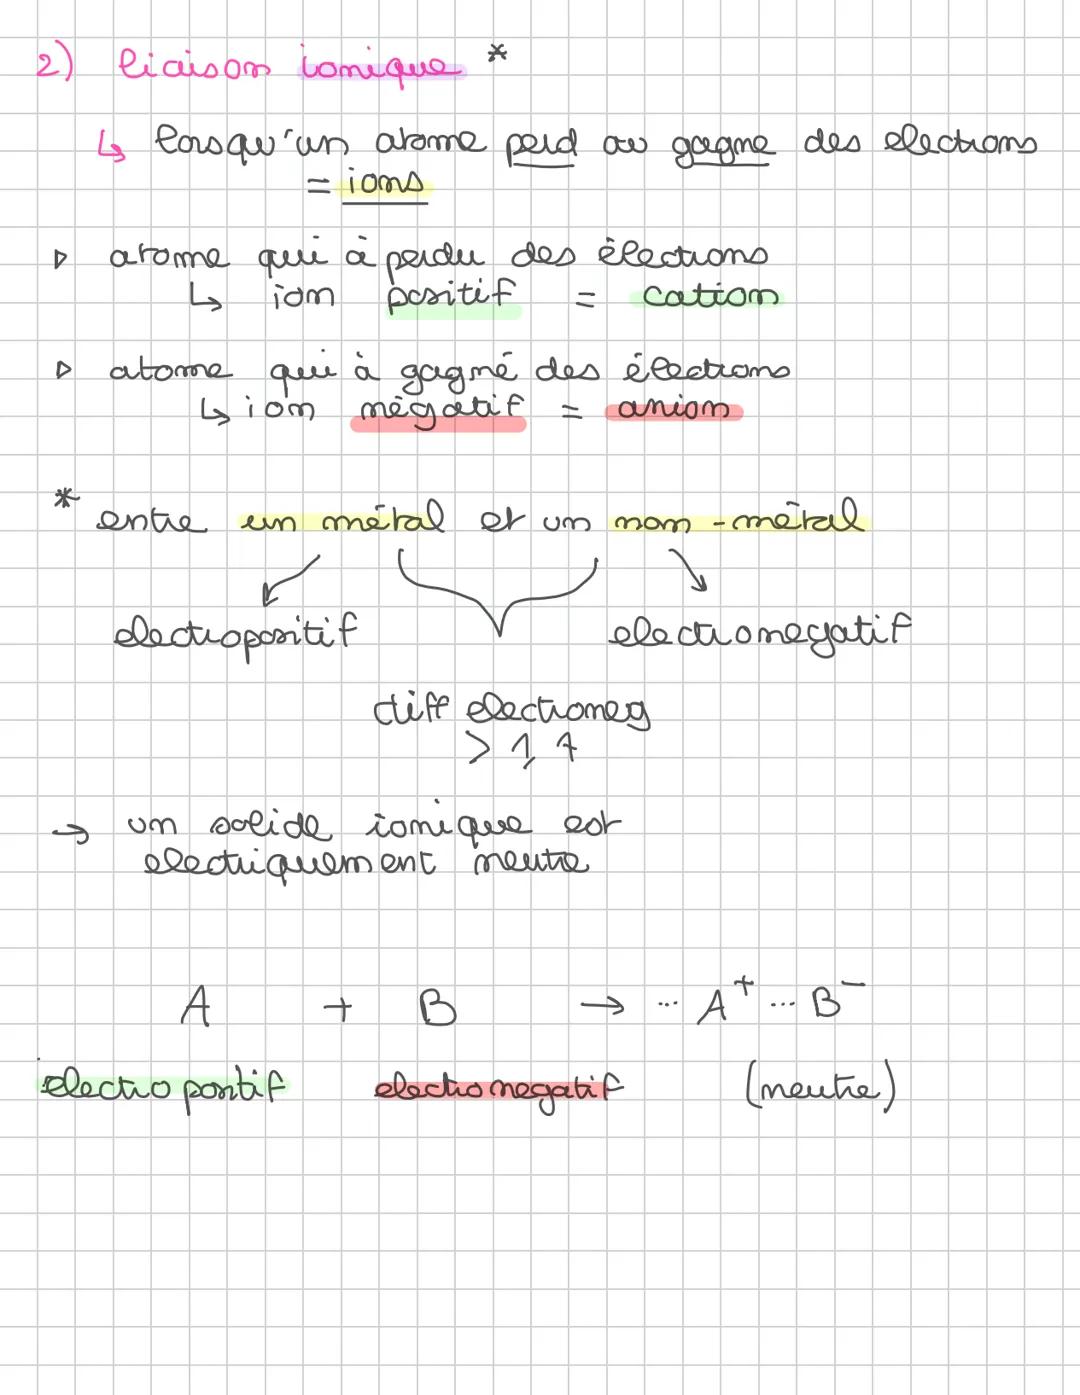 2) liaison ionique *
↳ lorsqu'un atome perd ou gagne des electrons
= ions
▷ atome qui à perdu des électrons
↳ ion positif = cation
▷ atome qui à gagné des électrons
↳ ion négatif = anion
* entre un métal et un non-métal
electropositif electronegatif
diff electroneg
> 1,7
→ un solide ionique est
electriquement neutre
A + B → ... A⁺ ... B⁻
electropositif electronegatif (neutre)